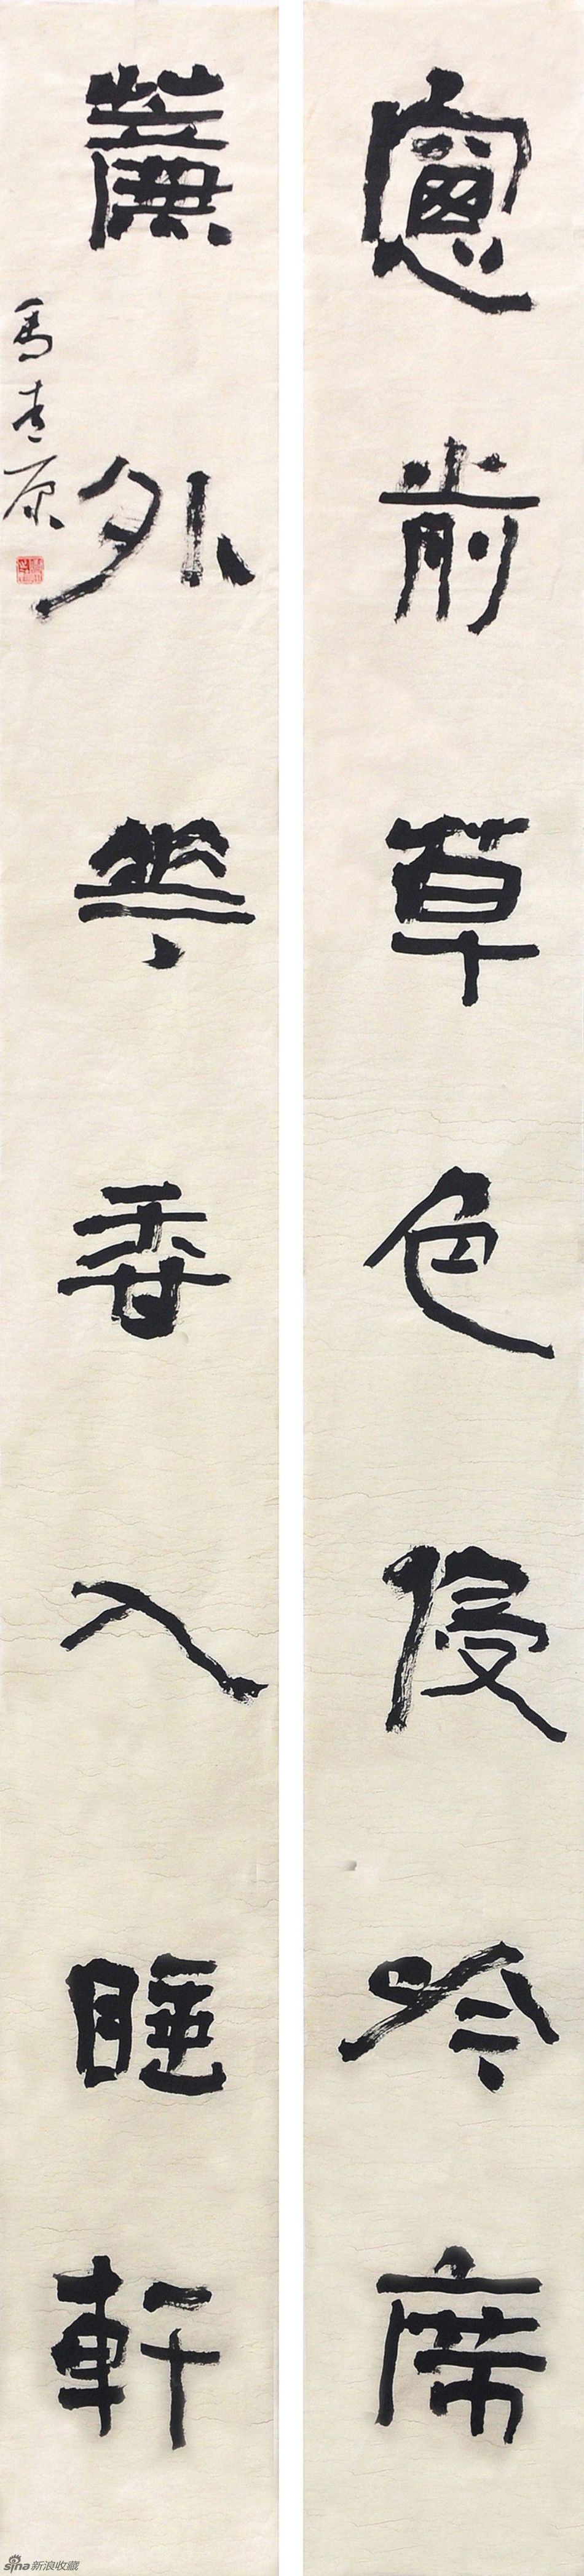 窻前草色侵吟席
簾外華香入睡軒
馬 原
sina 新浪收藏